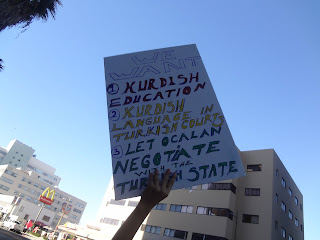 WE
WANT
① KURDISH
EDUCATION
② KURDISH
LANGUAGE IN
TURKISH COURTS
③ LET OCALAN
NEGOTIATE
WITH THE
TURKISH STATE